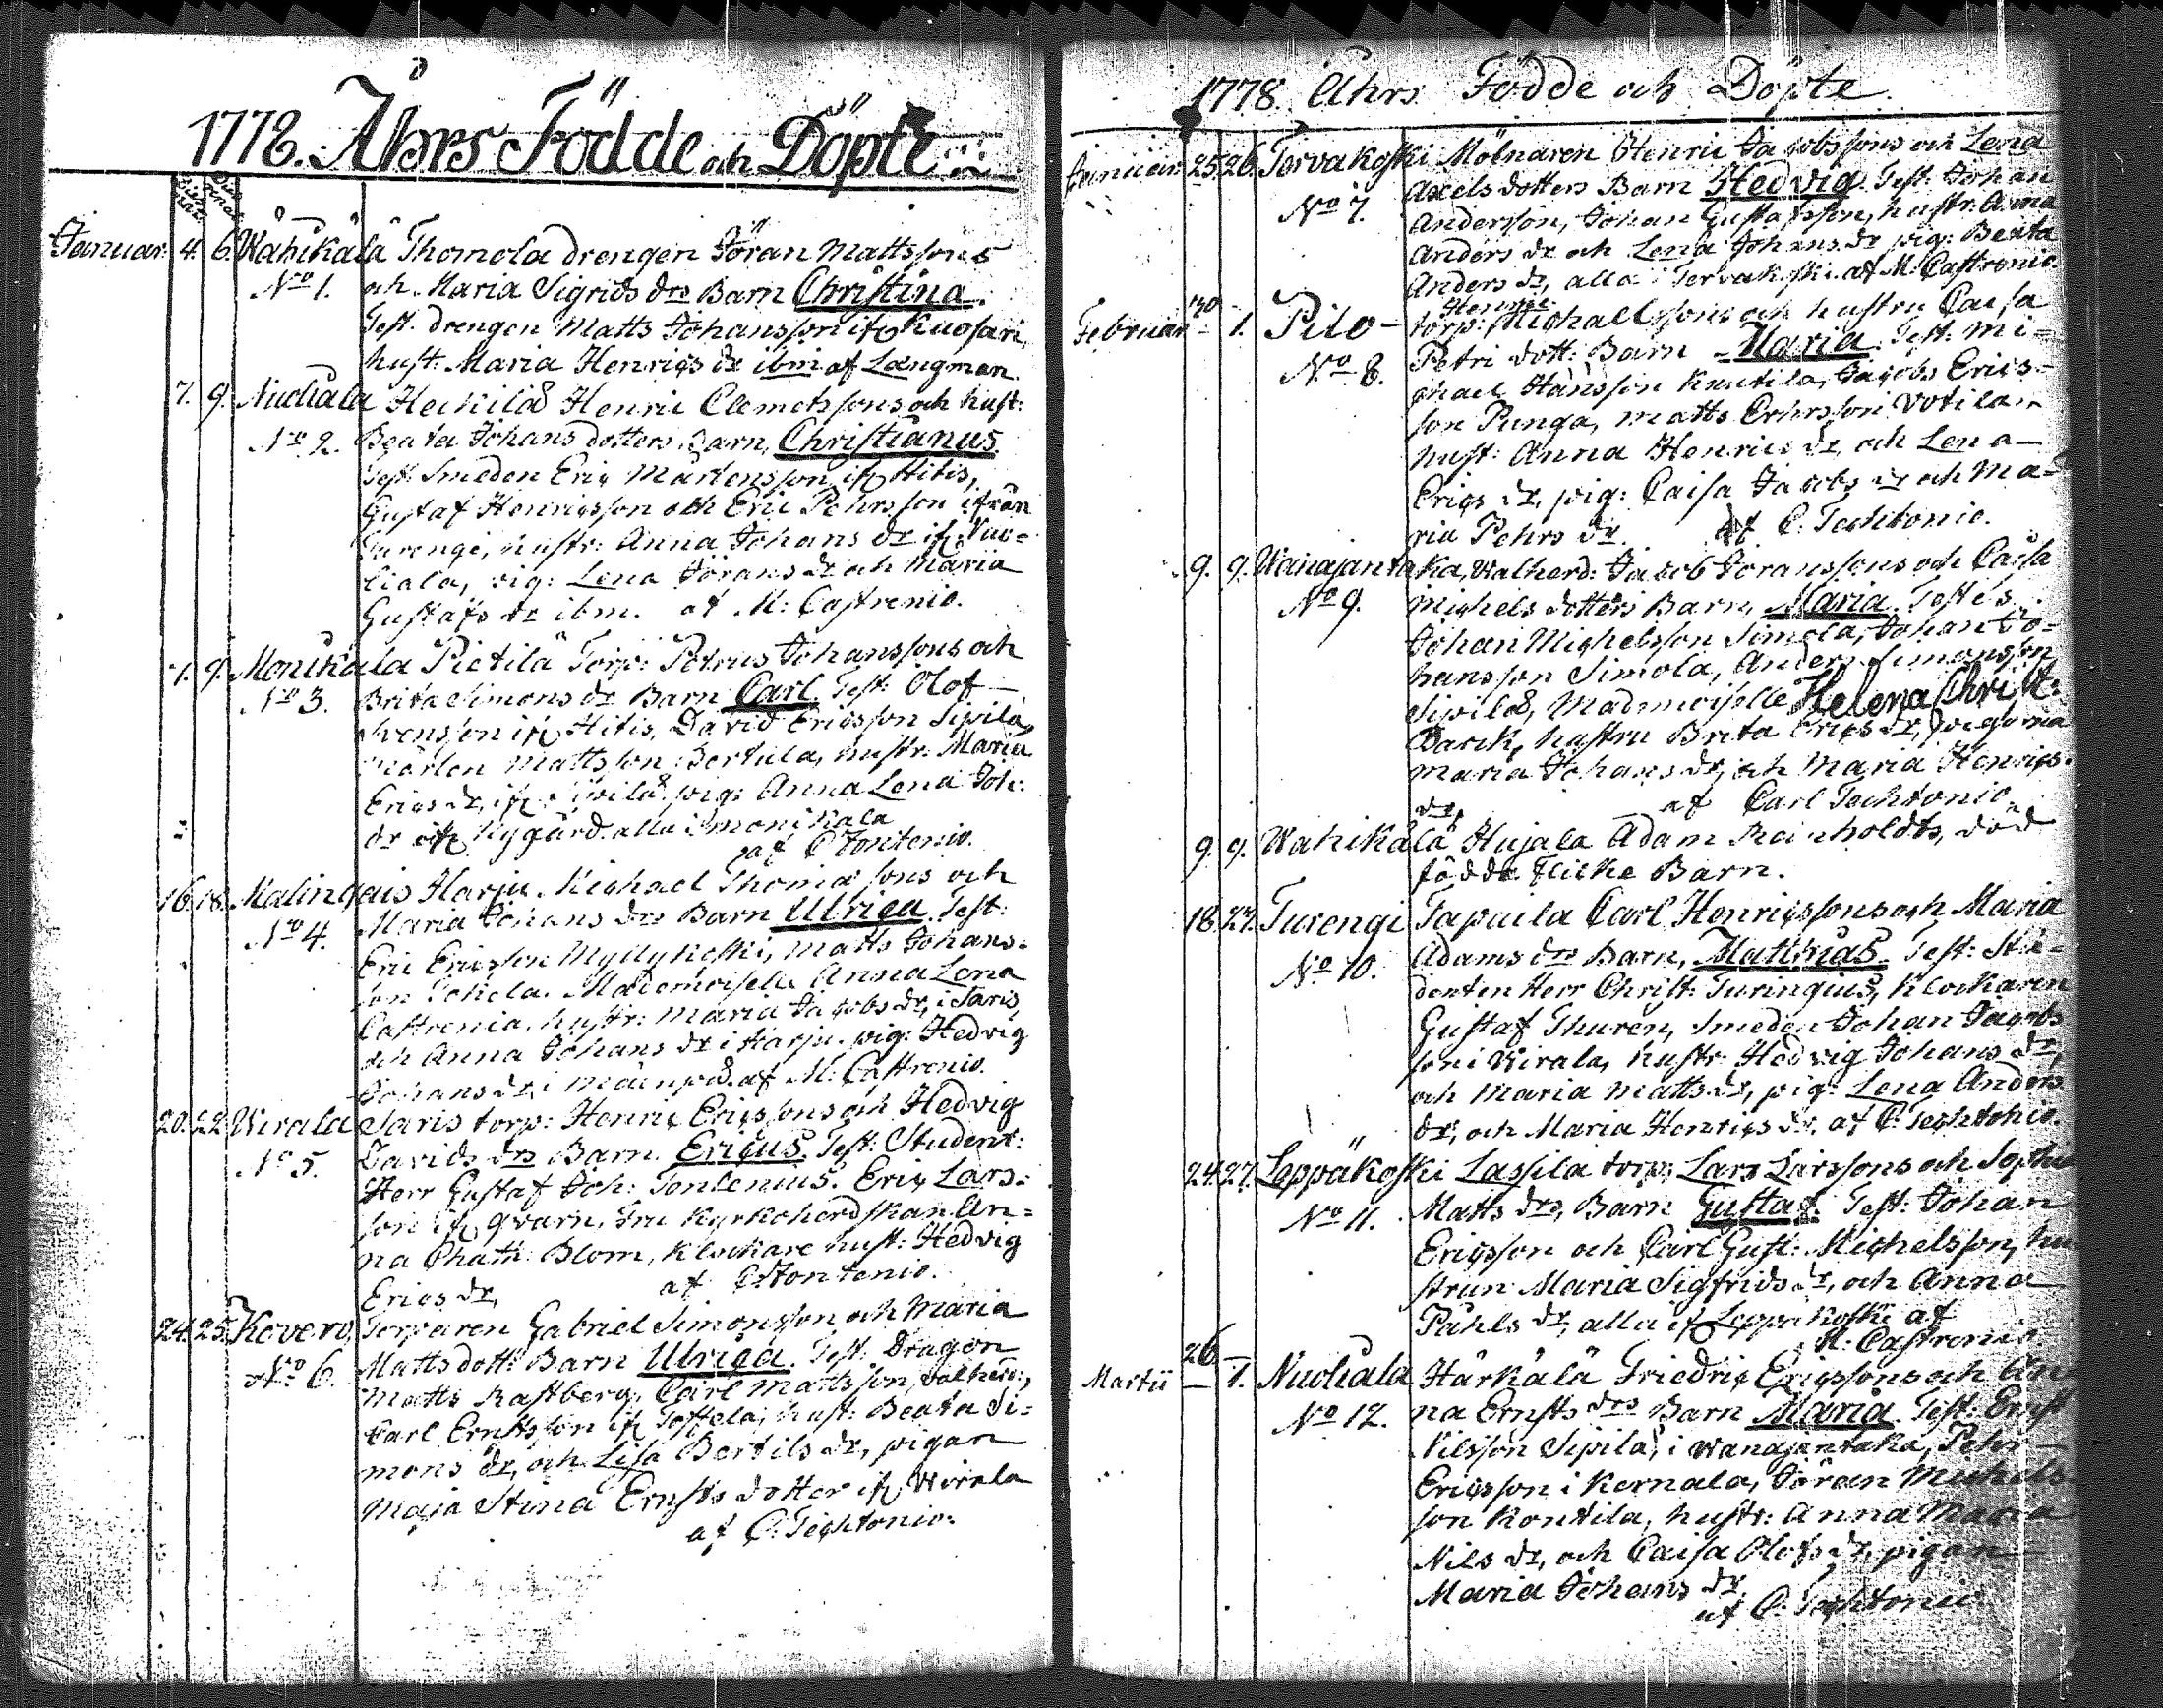 1778. Åhrs Födde och Döpte
Januar: 4. 6. Wähikälä Thomola drengen Jöran Mattssons
No 1. och Maria Sigrids drs Barn Christina.
Test. drengen Matts Johansson if Kuosari,
hust: Maria Henrics dr ibm af Langman.
7. 9. Nuoliala Heikilä Henric Clemetssons och hust:
No 2. Beata Johans dotters Barn, Christianus.
Test: Smeden Eric Mårtensson if Hitis,
Gustaf Henricsson och Eric Pehrsson ifrån
Turengi, hustr: Anna Johans dr if Nuo=
liala, pig: Lena Jörans dr och Maria
Gustafs dr ibm. af M: Castrenio.
7. 9. Monikala Pietilä Torp: Petrus Johanssons och
No 3. Brita Simons dr Barn Carl. Test: Olof
Svensson if Hitis, David Ericsson Sipilä,
Mårten Mattsson Bertula, hustr: Maria
Erics dr, if Sipilä, pig: Anna Lena Joh:
dr if Nygård. alla i Monikala
af C Tontenio.
16. 18. Malingais Harju Michael Thomæ sons och
No 4. Maria Johans drs Barn Ulrica. Test:
Eric Ericsson Myllykoski, Matts Johans=
son Tokela. Mademoiselle Anna Lena
Castrenia. hustr: Maria Jacobs dr, i Saris,
och Anna Johans dr i Harju. pig: Hedvig
Johans dr, i Mäenpää. af M: Castrenio.
20. 22. Wirala Saris torp: Henric Ericssons och Hedvig
No 5. Davids drs Barn Ericus. Test: Student:
Herr Gustaf Joh: Tenlenius. Eric Lars=
son if Qvarn, Fru Kyrkoherdskan An=
na Chath: Blom, Klockare hust: Hedvig
Erics dr, af C Tontenio.
24. 25. Kovero, Torparen Gabriel Simonsson och Maria
No 6. Matts dott: Barn Ulrica. Test: Dragon
Matts Rastberg, Carl Mattsson, valherd:,
Carl Ernstsson if Toffela, hust: Beata Si=
mons dr, och Lisa Bertils dr, pigan
Maja Stina Ernsts dotter if Wirala
af C. Techtonio.
1778. Åhrs Födde och Döpte.
Januar: 25. 26. Tervakoski Mölnaren Henric Jacobssons och Lena
No 7. Axels dotters Barn Hedvig. Test: Johan
Andersson, Johan Gustafsson, hustr: Anna
Anders dr och Lena Johans dr pig: Beata
Anders dr, alla i Tervakoski. af M: Castrenio.
Henric
Februar: 30 1. Pilo- torp: Michaelssons och hustru Caisa
No 8. Petri dott: Barn Maria. Test: Mi=
chael Hansson Knutila, Jacobs Erics=
son Punga, Matts Erhrsson Votila,
hust: Anna Henrics dr, och Lena
Erics dr, pig: Caisa Jacobs dr och Ma=
ria Pehrs dr. af C. Techtonio.
9. 9. Wanajantaka, Walherd: Jacob Göranssons och Caisa
No 9. Michels dotters Barn, Maria. Testes
Johan Michelsson Simola, Johan Jo=
hansson Simola, Anders Simonsson
Sipilä, Mademoiselle Helena Christ:
Baeck, hustru Brita Erics dr, pigorna
Maria Johans dr, och Maria Henrics
dr, af Carl Techtonio.
9. 9. Wahikälä Hujala Adam Reinholdts, död
födde Flicke Barn.
18. 23. Turengi Tapaila Carl Henricssons och Maria
No 10. Adams drs Barn, Matthias. Test: Stu=
denten Herr Christ: Turingius, Klockaren
Gustaf Thuren, Smeden Johan Jacobs
son i Wirala, hustr: Hedvig Johans dr,
och Maria Matts dr, pig: Lena Anders
dr, och Maria Henrics dr. af C: Techtonio.
24. 27. Leppäkoski Lassila torp: Lars Larssons och Sophia
No 11. Matts drs, Barn Gustaf. Test: Johan
Ericsson och Carl Gust: Michelsson, hu
strun Maria Sigfrids dr, och Anna
Påhls dr, alla if Leppäkoski af
M: Castrenio
Martii 26 1. Nuoliala Härkälä Friedric Ericssons och An
No 12. na Ernsts drs Barn Maria. Test: Ernst
Nilsson Sipilä, i Wanajantaka, Pehr
Ericsson i Kernala, Jöran Michels
son Kontila, hustr: Anna Maria
Nils dr, och Caisa Olofs dr, pigan
Maria Johans dr.
af C. Techtonio